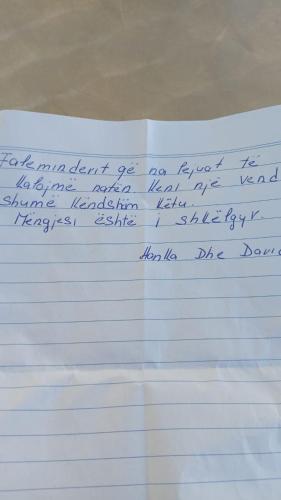 Faleminderit që na lejuat të
kalojmë natën keni një vend
shumë këndshëm këtu.
Mëngjesi është i shkëlqyr.
Hanka Dhe David